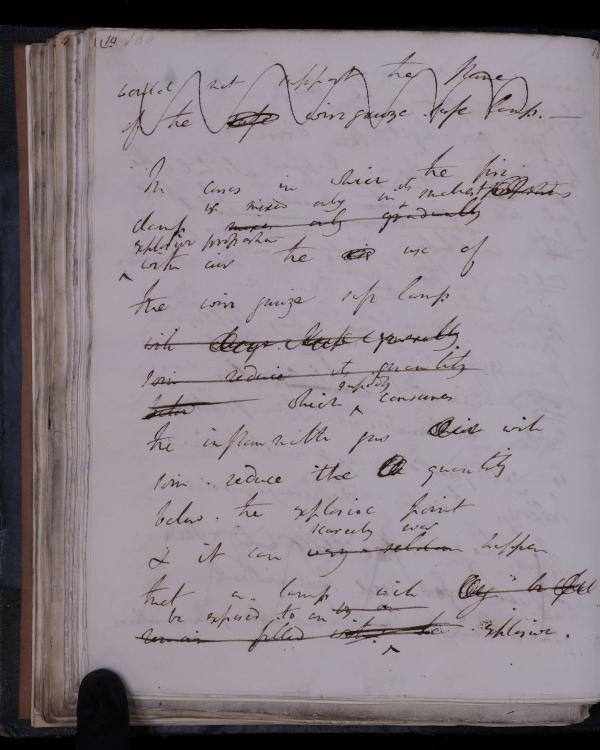 would not support the flame
of the safe wire gauze safe lamp. —
In cases in which the fire
is mixed only in its smallest
damp mixes only gradually
explosive proportion
with air the use of
the wire gauze safe lamp
will generally
soon reduce its quantity
below which rapidly consumes
the inflammable gas will
soon reduce the quantity
below the explosive point
scarcely ever
& it can very seldom happen
that a lamp will be
be exposed to an
remain filled with explosive.